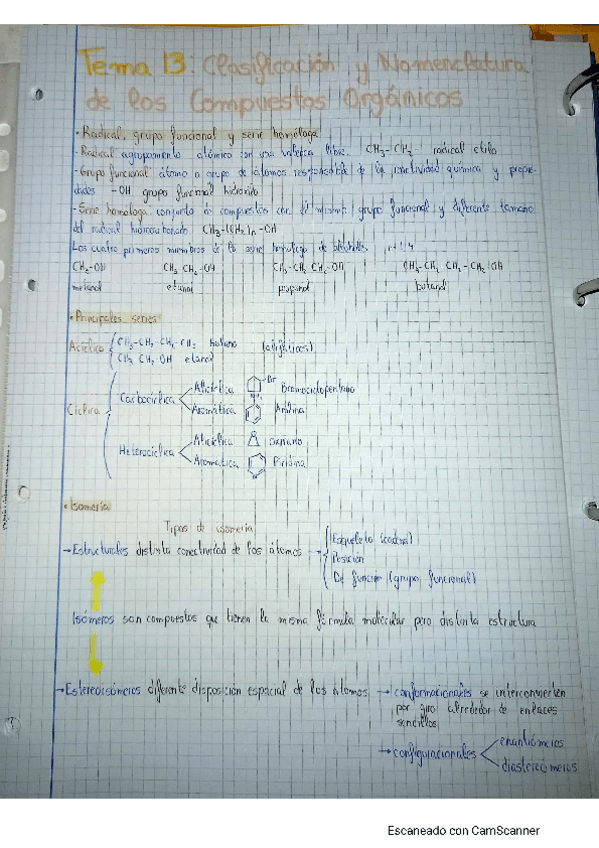 Tema 13: Clasificación y Nomenclatura
de los Compuestos Orgánicos
• Radical, grupo funcional y serie homóloga
- Radical agrupamiento atómico con una valencia libre. CH3-CH2- radical etilo
- Grupo funcional: átomo o grupo de átomos responsable de la reactividad química y propie-
dades -OH grupo funcional hidroxilo
- Serie homóloga conjunto de compuestos con el mismo grupo funcional y diferente tamaño
del radical hidrocarbonado CH3-(CH2)n-OH
Los cuatro primeros miembros de la serie homóloga de alcoholes
CH3-OH CH3-CH2-OH CH3-CH2-CH2-OH CH3-CH2-CH2-CH2-OH
metanol etanol propanol butanol
• Principales series
Acíclica CH3-CH2-CH2-CH3 butano (alifáticos)
CH3-CH2-OH etanol
Cíclica
Carbocíclica
Alicíclica Br Bromociclopentano
Aromática Anilina
Heterocíclica
Alicíclica Oxirano
Aromática Piridina
• Isomería
Tipos de isomería
→ Estructurales distinta conectividad de los átomos →
Esqueleto (cadena)
Posición
De función (grupo funcional)
Isómeros son compuestos que tienen la misma fórmula molecular pero distinta estructura
→ Estereoisómeros diferente disposición espacial de los átomos → conformacionales se interconvierten
por giro alrededor de enlaces
sencillos
→ configuracionales
enantiómeros
diastereómeros
Escaneado con CamScanner